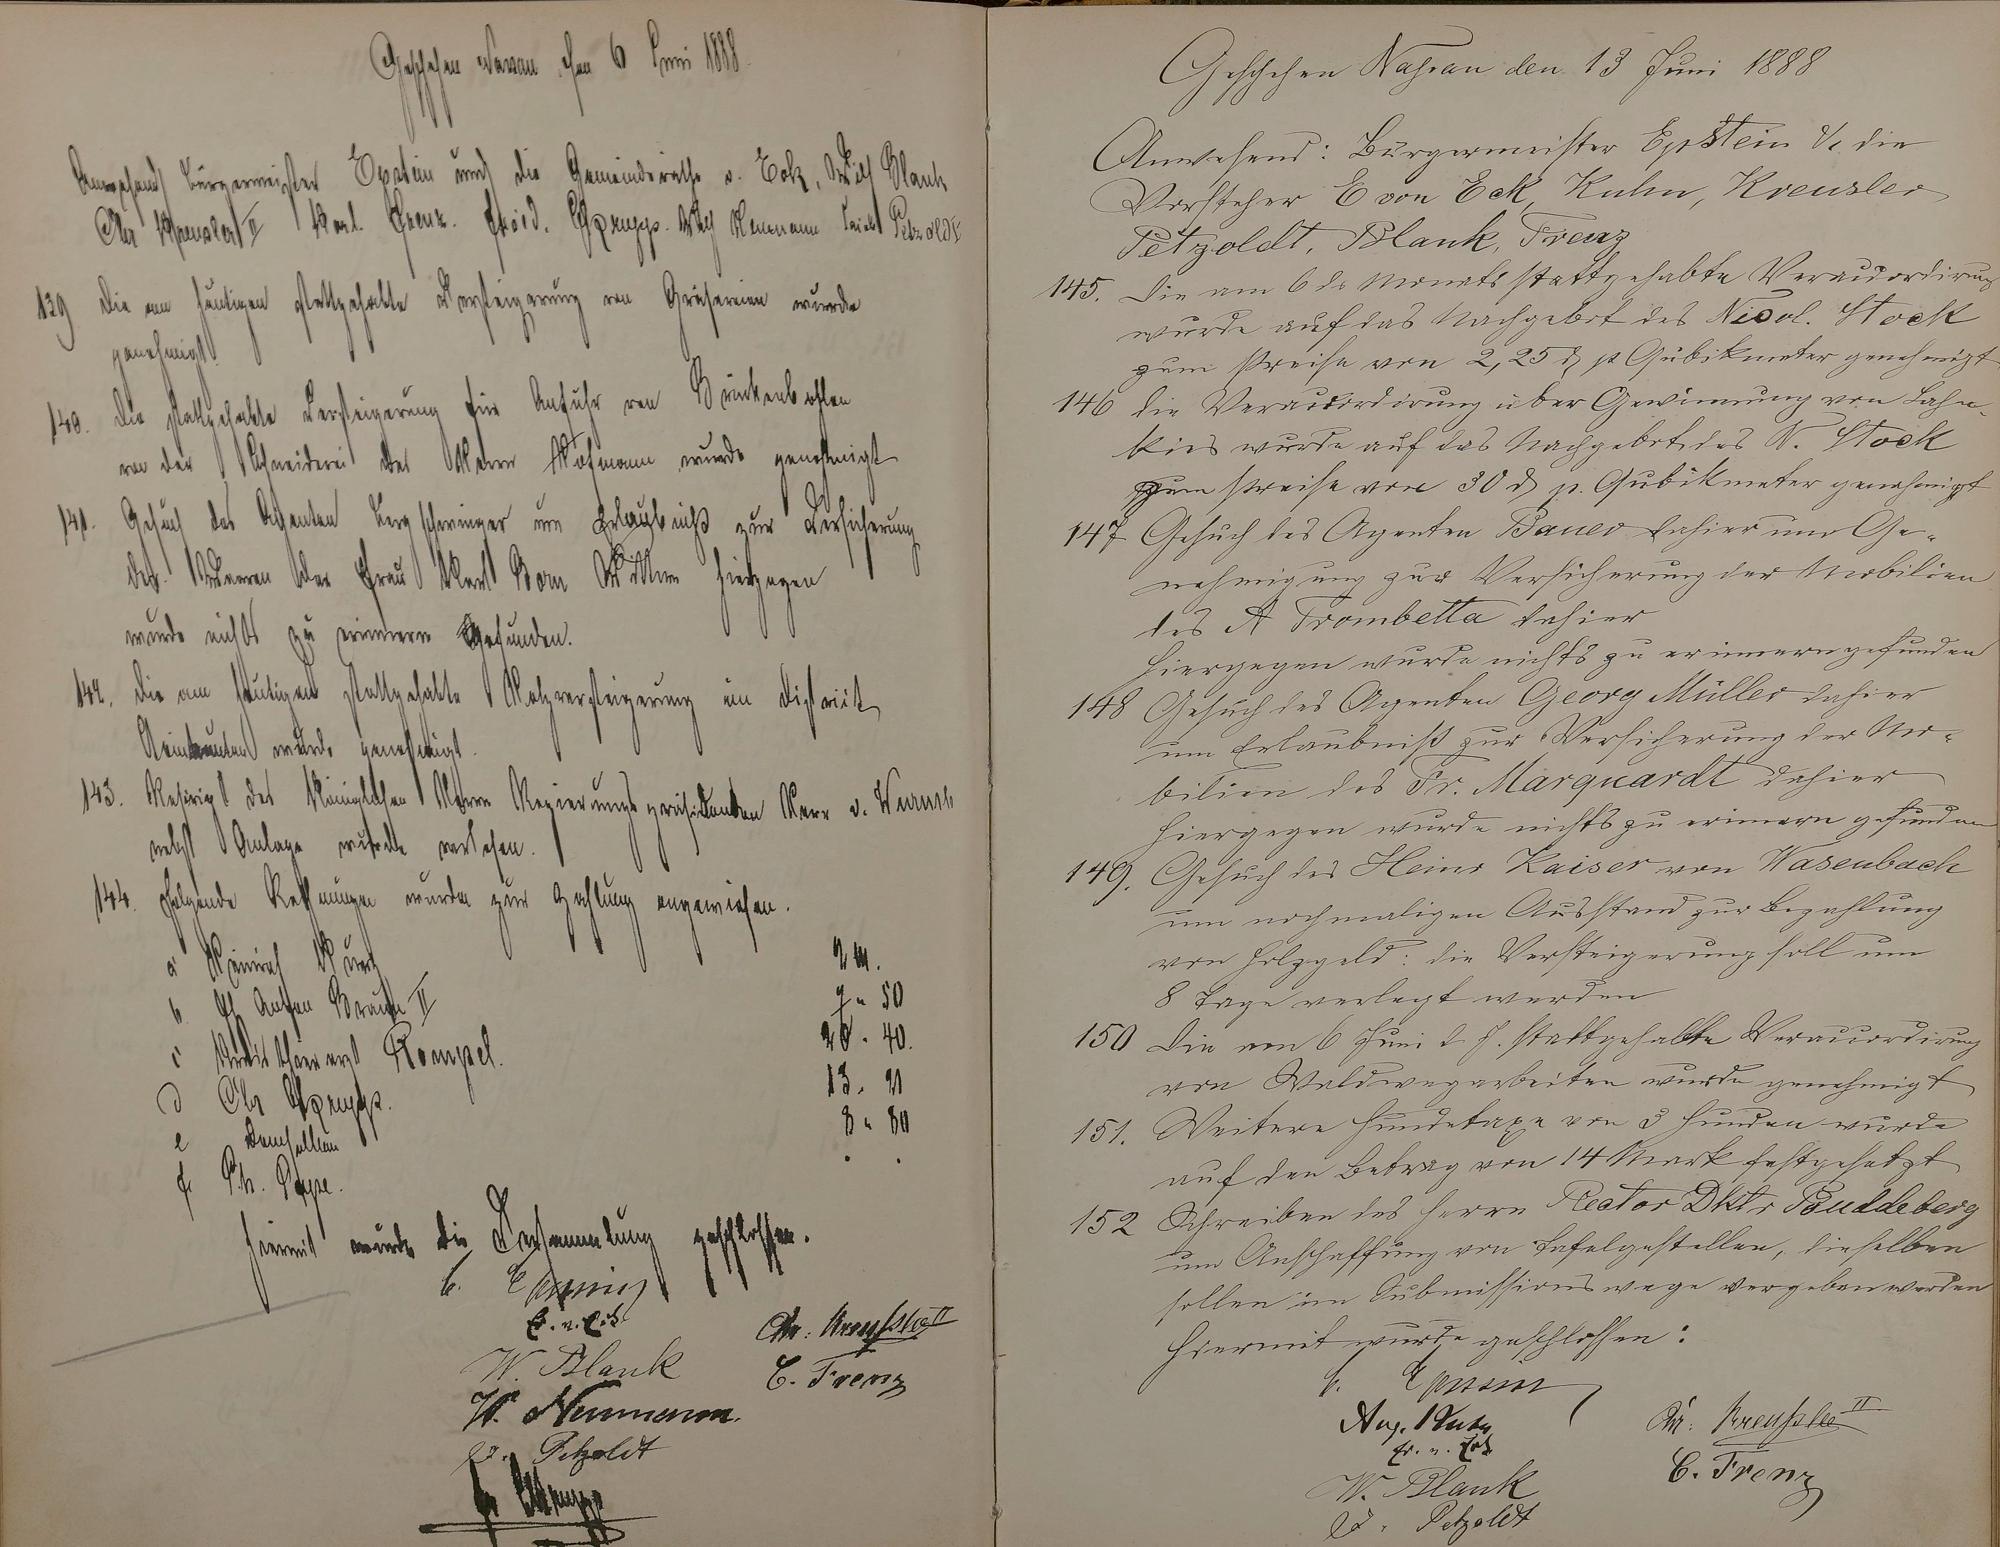 Geschehen Nassau den 6 Juni 1888
Anwesend Bürgermeister Epstein und die Gemeinderäthe v. Eck, Wilh Blank
Chr Kreusler II Karl Frenz. Fried. Wilh Neumann Petzoldt
139 Die am heutigen stattgehabte Versteigerung von Gräsereien wurde
genehmigt.
140. Die stattgehabte Versteigerung für Anfuhr von Brückenbohlen
von der Schneiderei des Herrn Hofmann wurde genehmigt
141. Gesuch des Agenten um Erlaubniß zur Versicherung
der Waaren der Frau Karl Born Wittwe hiergegen
wurde nichts zu erinnern gefunden.
142. Die am heutigen stattgehabte Holzversteigerung im District
wurde genehmigt.
143. Rescript des Königlichen Herrn Regierungspräsidenten Herr v. Wurmb
nebst Anlage wurde verlesen.
144. Folgende Rechnungen wurden zur Zahlung angewiesen.
a Heinrich 2 M.
b. Anton Braun II 7 " 50
c Kreisthierarzt Rompel. 26 " 40.
d Chr 13. 21
e Demselben 8 " 80
f. Ph. . .
Hiermit wurde die Versammlung geschlossen.
b. Epstein
E. v. Eck Chr: Kreusler II
W. Blank C. Frenz
W. Neumann.
J. Petzoldt
Geschehen Nassau den 13 Juni 1888
Anwesend: Bürgermeister Epstein & die
Vorsteher E von Eck, Kuhn, Kreusler
Petzoldt, Blank, Frenz
145. Die am 6 ds Monats stattgehabte Veraccordirung
wurde auf das Nachgebot des Nicol. Stock
zum Preise von 2,25 ₰ p Qubikmeter genehmigt
146 die Veraccordirung über Gewinnung von Lahn-
kies wurde auf das Nachgebot des N. Stock
zum Preise von 30 ₰ p. Qubikmeter genehmigt
147 Gesuch des Agenten Bauer dahier um Ge-
nehmigung zur Versicherung der Mobilien
des A Trombetta dahier
hiergegen wurde nichts zu erinnern gefunden
148 Gesuch des Agenten Georg Müller dahier
um Erlaubniß zur Versicherung der Mo-
bilien des Fr. Marquardt dahier
hiergegen wurde nichts zu erinnern gefunden
149. Gesuch des Heinr Kaiser von Wasenbach
um nochmaligen Ausstand zur Bezahlung
von Holzgeld: die Versteigerung soll um
8 Tage verlegt werden
150 Die am 6 Juni d J. stattgehabte Veraccordirung
von Waldwegarbeiten wurde genehmigt
151. Weitere Hundetaxe von 3 Hunden wurde
auf den Betrag von 14 Mark festgesetzt
152 Schreiben des Herrn Rector Dktr Buddeberg
um Anschaffung von Tafelgestellen, dieselben
sollen im Submissionswege vergeben werden
Hiermit wurde geschlossen:
b. Epstein
Aug. Kuhn Chr: Kreusler II
E. v. Eck
W. Blank C. Frenz
J. Petzoldt